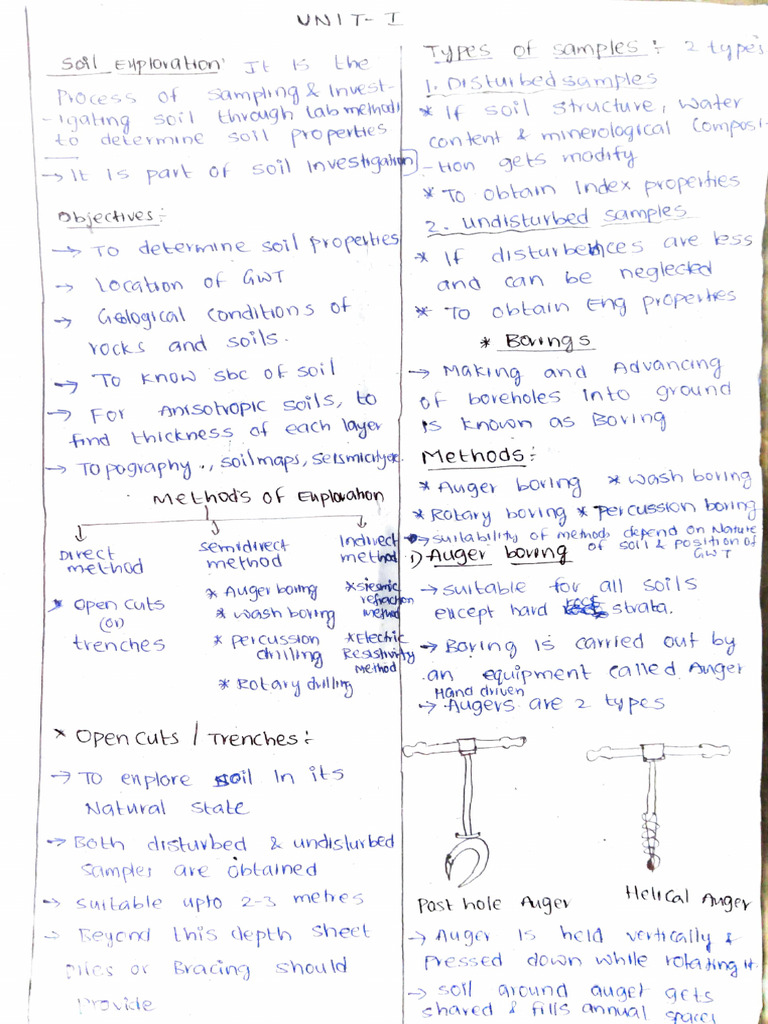 UNIT-I
Soil Exploration: It is the
Process of sampling & Invest-
-igating soil through lab methods
to determine soil properties
→ It is part of soil investigation
Objectives:-
→ To determine soil properties
→ Location of GWT
→ Geological conditions of
rocks and soils.
→ To know sbc of soil
→ For Anisotropic soils, to
find thickness of each layer
→ Topography., soilmaps, seismicity etc.
Methods of Exploration
Direct
method
* Open cuts
(or)
trenches
semidirect
method
* Auger boring
* wash boring
* percussion
drilling
* Rotary drilling
Indirect
method
* siesmic
refraction
method
* Electric
Resistivity
Method
* Open cuts / Trenches:-
→ To explore soil In its
Natural state
→ Both disturbed & undisturbed
samples are obtained
→ suitable upto 2-3 metres
→ Beyond this depth sheet
piles or Bracing should
provide
Types of samples:- 2 types
1. Disturbed samples
* If soil structure, water
content & minerological composi-
-tion gets modify
* To obtain Index properties
2. Undisturbed samples
* If disturbences are less
and can be neglected
* To obtain Eng properties
* Borings
→ Making and Advancing
of boreholes into ground
is known as Boring
Methods:-
* Auger boring * wash boring
* Rotary boring * percussion boring
→ suitability of methods depend on Nature
of soil & position of
GWT
1) Auger boring
→ suitable for all soils
except hard strata.
→ Boring is carried out by
an equipment called Auger
Hand driven
→ Augers are 2 types
Post hole Auger
Helical Auger
→ Auger is held vertically &
pressed down while rotating it.
→ soil around auger gets
shared & fills annual spaces